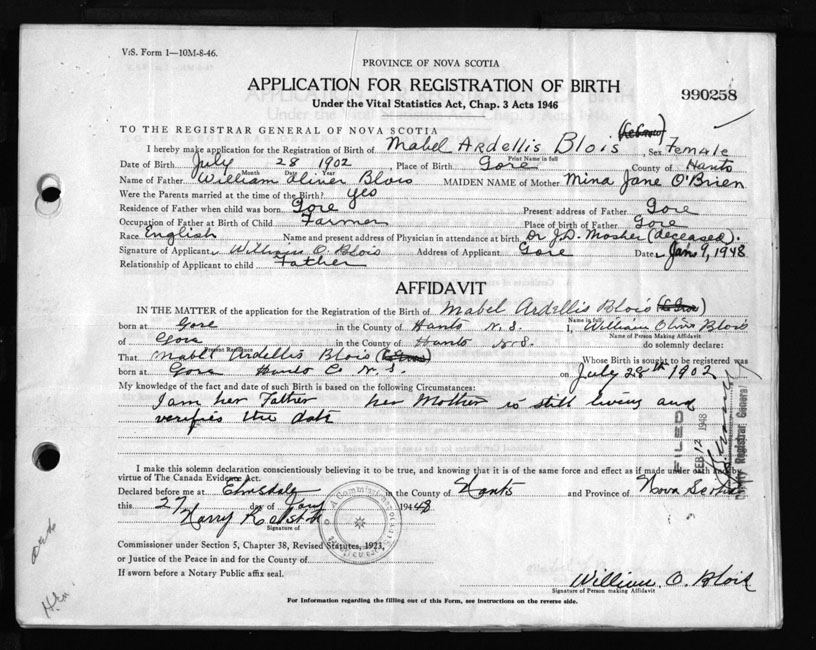 V.S. Form 1—10M-8-46.
PROVINCE OF NOVA SCOTIA
APPLICATION FOR REGISTRATION OF BIRTH
Under the Vital Statistics Act, Chap. 3 Acts 1946
990258
TO THE REGISTRAR GENERAL OF NOVA SCOTIA
I hereby make application for the Registration of Birth of Mabel Ardellis Blois Sex Female
Print Name in full
Date of Birth July 28 1902 Place of Birth Gore County of Hants
Month Day Year
Name of Father William Oliver Blois MAIDEN NAME of Mother Mina Jane O'Brien
Were the Parents married at the time of the Birth? yes
Residence of Father when child was born Gore Present address of Father Gore
Occupation of Father at Birth of Child Farmer Place of birth of Father Gore
Race English Name and present address of Physician in attendance at birth Dr J.D. Mosher (deceased).
Signature of Applicant William O. Blois Address of Applicant Gore Date Jan 9, 1948
Relationship of Applicant to child Father
AFFIDAVIT
IN THE MATTER of the application for the Registration of the Birth of Mabel Ardellis Blois
Name in full
born at Gore in the County of Hants N.S. I, William Oliver Blois
Name of Person Making Affidavit
of Gore in the County of Hants N.S. do solemnly declare:
Present Residence
That Mabel Ardellis Blois Whose Birth is sought to be registered was
born at Gore Hants Co N.S. on July 28th 1902
My knowledge of the fact and date of such Birth is based on the following Circumstances:
I am her Father her Mother is still living and
verifies the date
FILED
FEB 12 1948
Deputy Registrar General
I make this solemn declaration conscientiously believing it to be true, and knowing that it is of the same force and effect as if made under oath and by
virtue of The Canada Evidence Act.
Declared before me at Elmsdale in the County of Hants and Province of Nova Scotia
this 27 day of Jany 1948
Harry
Signature of
Commissioner under Section 5, Chapter 38, Revised Statutes, 1923,
or Justice of the Peace in and for the County of
If sworn before a Notary Public affix seal.
William O. Blois
Signature of Person making Affidavit
For Information regarding the filling out of this Form, see instructions on the reverse side.